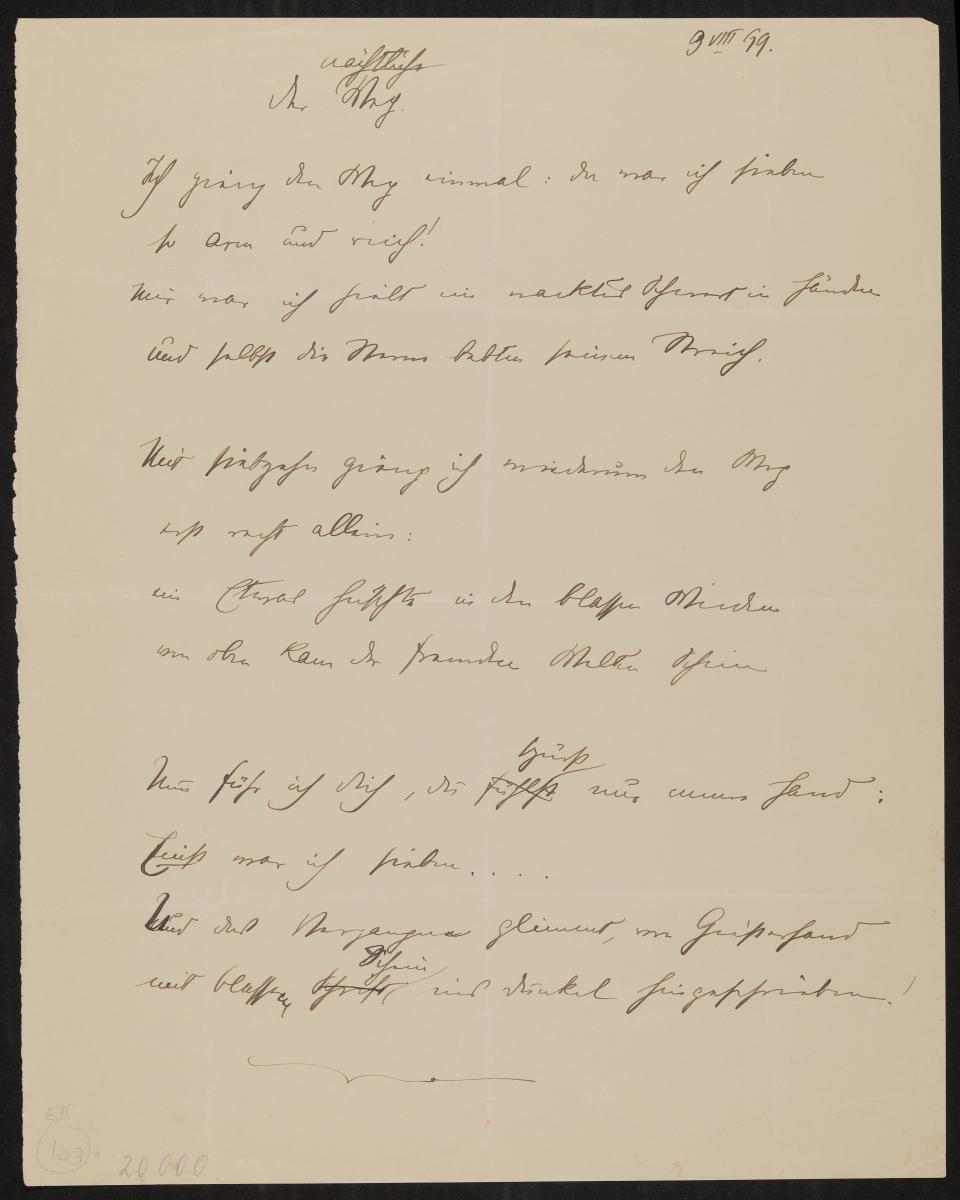 9 VIII 99.
nächtliche
Der Weg.
Ich gieng den Weg einmal: da war ich sieben
so arm und reich!
Mir war ich hielt ein nacktes Schwert in Händen
und selbst die Sterne bebten seinem Streich.
Mit siebzehn gieng ich wiederum den Weg
erst recht allein:
ein Etwas huschte in den blassen Winden
von oben kam der fremden Welten Schein
spürst
Nun führ ich dich, du fühlst nur meine Hand:
Einst war ich sieben....
Und das Vergangne glimmt, von Geisterhand
Schein
mit blassem Schrift ins dunkel hingeschrieben!
E II
103
20000